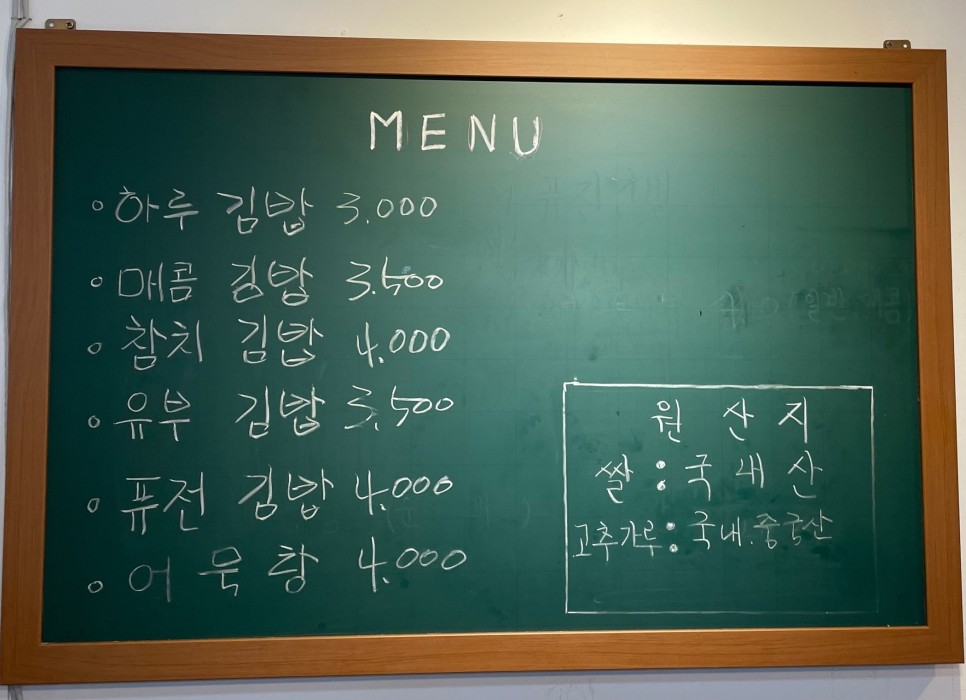 MENU
◦ 하루 김밥 3.000
◦ 매콤 김밥 3.500
◦ 참치 김밥 4.000
◦ 유부 김밥 3.500
◦ 퓨전 김밥 4.000
◦ 어묵창 4.000
원산지
쌀 : 국내산
고추가루 : 국내.중국산